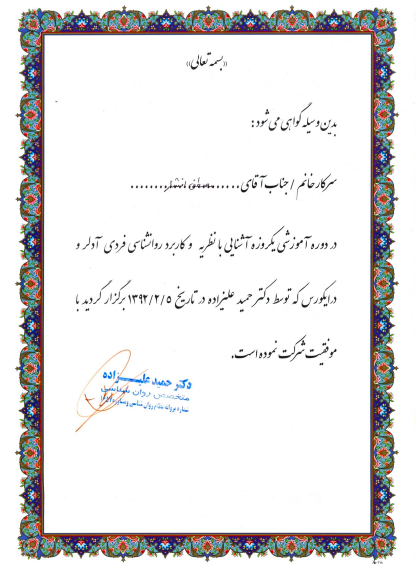 «بسمه تعالی»
بدین وسیله گواهی می شود:
سرکار خانم / جناب آقای..... مصطفی .......
در دوره آموزشی یکروزه آشنایی با نظریه و کاربرد روانشناسی فردی آدلر و
درایکورس که توسط دکتر حمید علیزاده در تاریخ ۱۳۹۲/۲/۵ برگزار گردید با
موفقیت شرکت نموده است.
دکتر حمید علیـــزاده
متخصص روان شناسی
شماره پروانه نظام روان شناسی و مشاوره